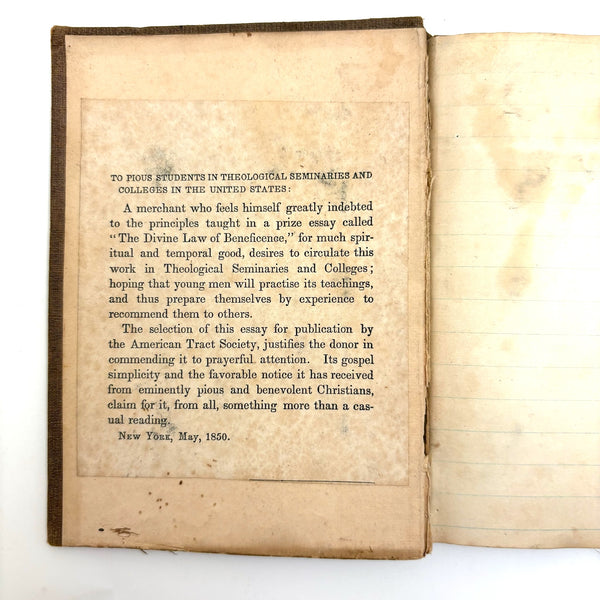 TO PIOUS STUDENTS IN THEOLOGICAL SEMINARIES AND
COLLEGES IN THE UNITED STATES:
A merchant who feels himself greatly indebted
to the principles taught in a prize essay called
"The Divine Law of Beneficence," for much spir-
itual and temporal good, desires to circulate this
work in Theological Seminaries and Colleges;
hoping that young men will practise its teachings,
and thus prepare themselves by experience to
recommend them to others.
The selection of this essay for publication by
the American Tract Society, justifies the donor in
commending it to prayerful attention. Its gospel
simplicity and the favorable notice it has received
from eminently pious and benevolent Christians,
claim for it, from all, something more than a cas-
ual reading.
NEW YORK, May, 1850.